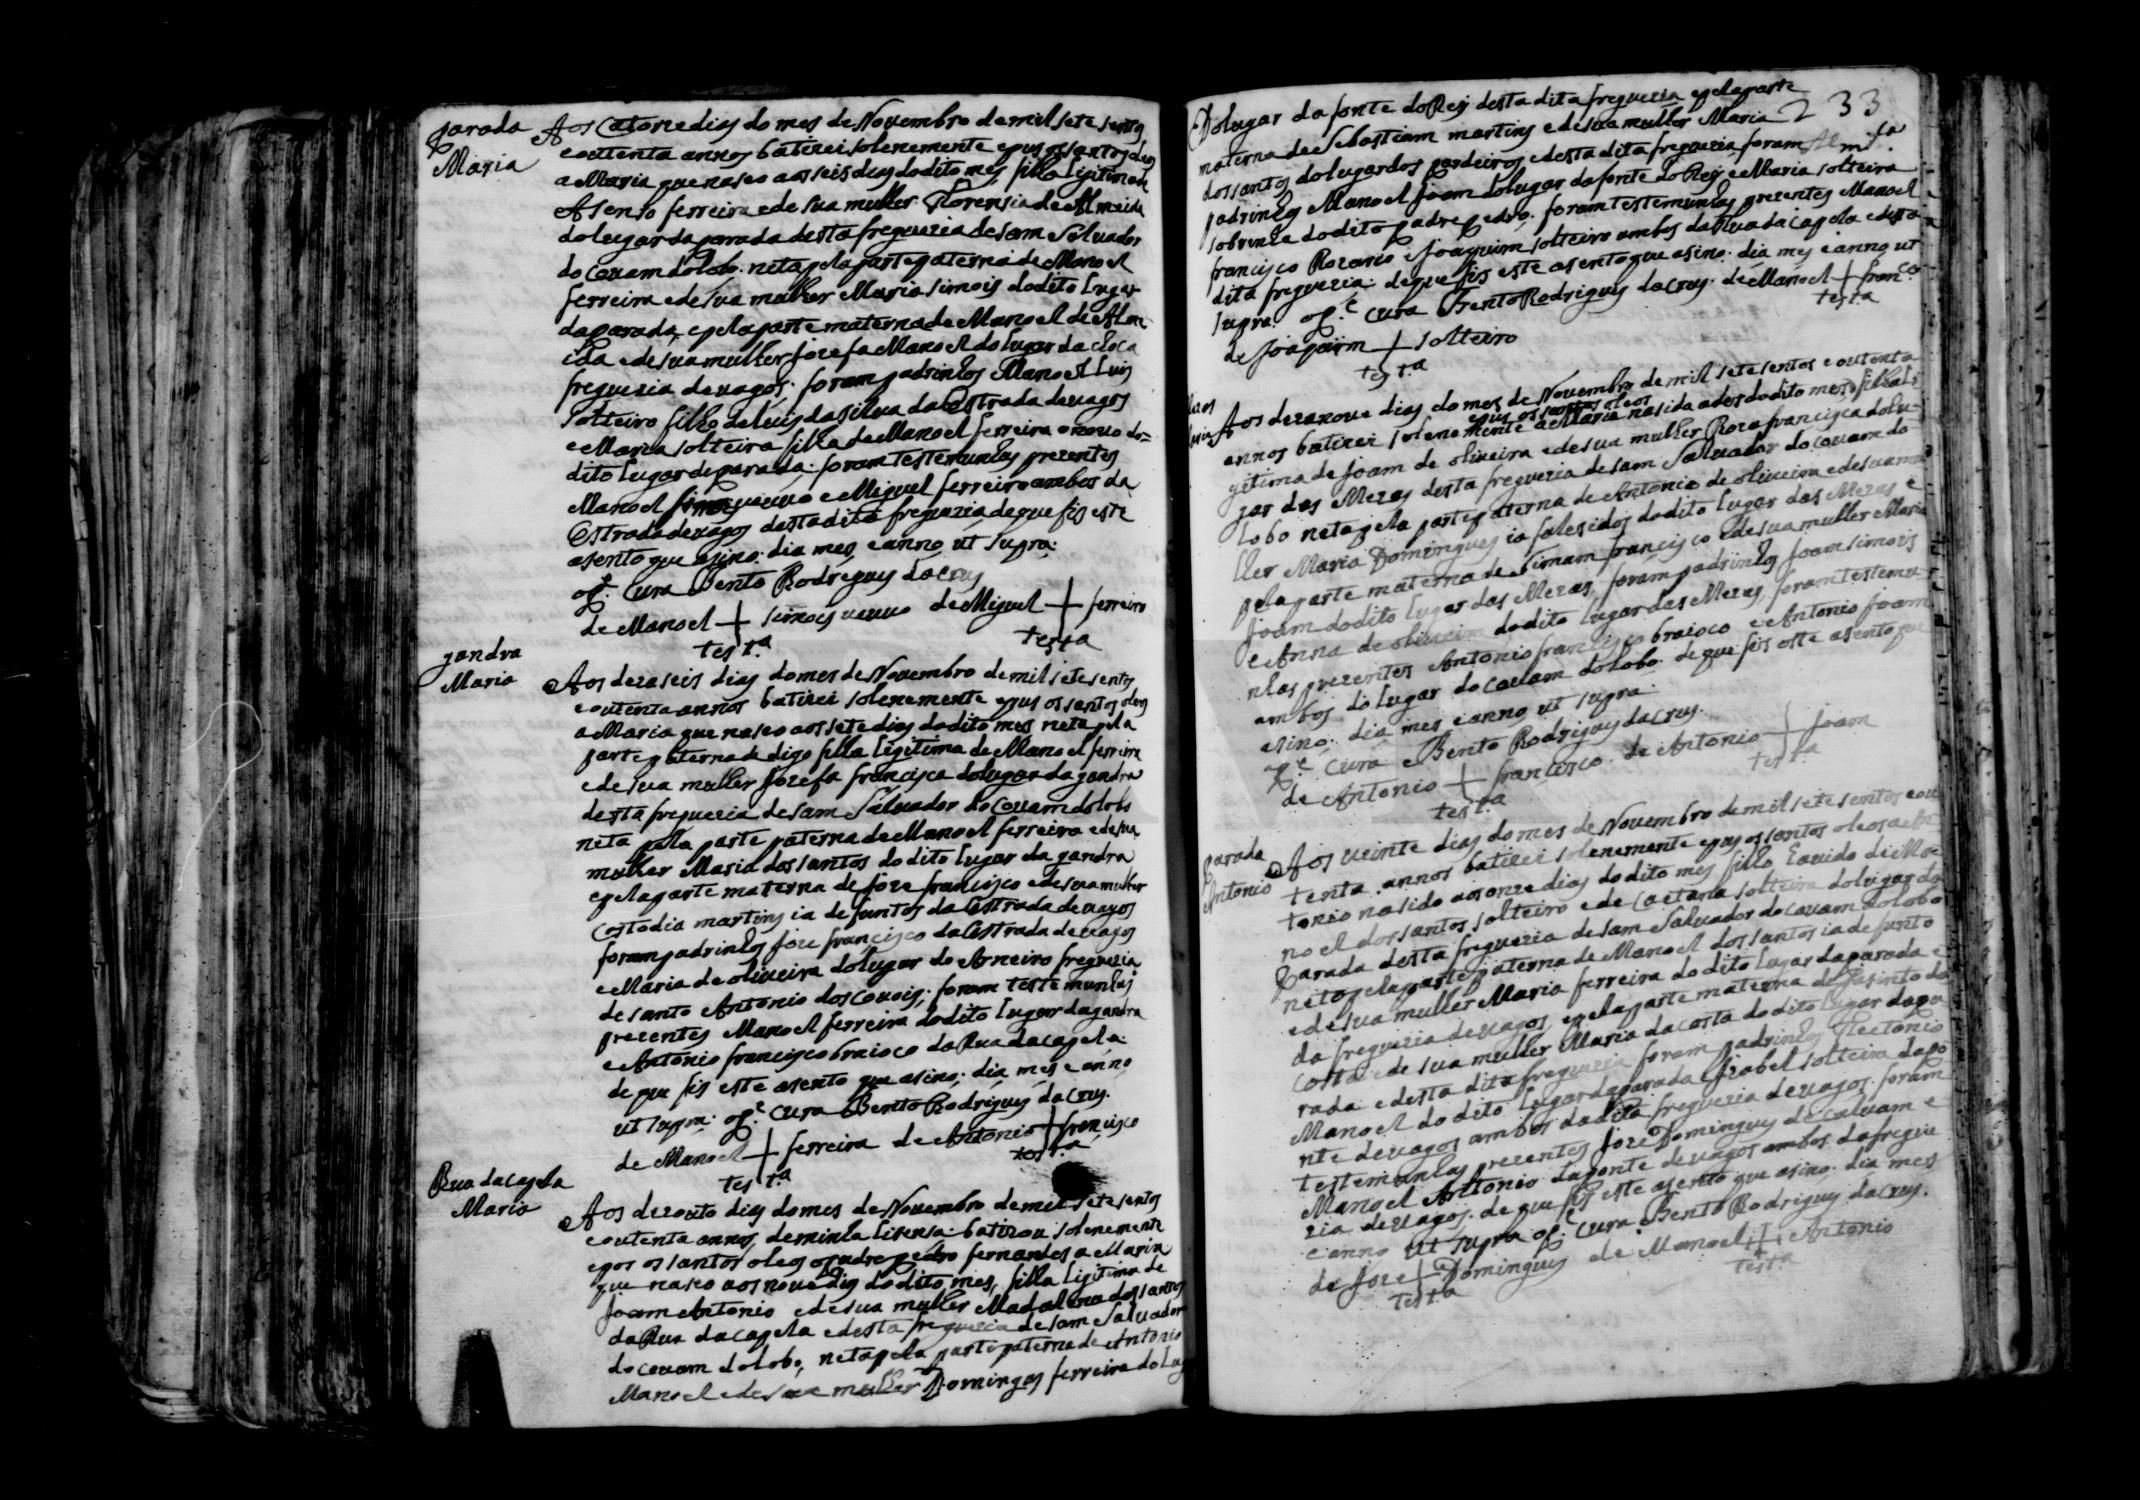 parada
Maria
Aos Catorze dias do mes de Novembro de mil sete sentos
e outenta annos batizei solenemente e pus os santos oleos
a Maria que naseo aos seis dias do dito mes filla legitima de
Asenso ferreira e de sua muller Florensia de Almeida
do lugar da parada desta freguezia de sam Saluador
do Couam do lobo. neta pela parte paterna de Manoel
ferreira e de sua muller Maria simois do dito lugar
da parada, e pela parte materna de Manoel de Alme
ida e de sua muller Jozefa Manoel do lugar da choca
freguezia de uagos; foram padrinhos Manoel Luis
solteiro fillo de luis da silua da Estrada de uagos
e Maria solteira filla de Manoel ferreira o nouo do=
dito lugar de parada: foram testemunhas prezentes
Manoel simois uiuuo e Miguel ferreiro ambos da
Estrada de uagos desta dita freguezia de que fis este
asento que asino. dia mes e anno ut supra.
o p.e Cura Bento Rodrigues da Crus
de Manoel + simois uiuuo de Miguel + ferreiro
test.a testa
gandra
Maria
Aos dezaseis dias do mes de Novembro de mil sete sentos
e outenta annos batizei solenemente e pus os santos oleos
a Maria que naseo aos sete dias do dito mes neta pela
parte paterna de digo filla legitima de Manoel ferreira
e de sua muller Jozefa francisca do lugar da gandra
desta freguezia de sam Saluador do Couam do lobo
neta pela parte paterna de Manoel ferreira e de sua
muller Maria dos santos do dito lugar da gandra
e pela parte materna de Joze francisco e de sua muller
Costodia martins ia defuntos da Estrada de uagos
foram padrinhos Joze francisco da Estrada de uagos
e Maria de oliueira do lugar do Arneiro freguezia
de santo Antonio dos Couois; foram testemunhas
prezentes Manoel ferreira do dito lugar da gandra
e Antonio francisco braioco da Rua da capela
de que fis este asento que asino; dia mes e anno
ut supra. o p.e Cura Bento Rodrigues da Crus.
de Manoel + ferreira de Antonio + francisco
test.a test.a
Rua da capela
Maria
Aos dezouto dias do mes de Novembro de mil sete sentos
e outenta annos, de minha lisensa batizou solenemente
e pos os santos oleos o padre pedro fernandes a Maria
que naseo aos noue dias do dito mes, filla legitima de
Joam Antonio e de sua muller Madalena dos santos
da Rua da capela e desta freguezia de sam Saluador
do couam do lobo, neta pela parte paterna de Antonio
Manoel e de sua muller Domingas ferreira do lug
233
Do lugar da fonte do Rey desta dita freguezia e pela parte
materna de Sebastiam martins e de sua muller Maria
dos santos do lugar dos pardeiros e desta dita freguezia foram
padrinhos Manoel Joam do lugar da fonte do Rey e Maria solteira
sobrinha do dito padre pedro. foram testemunhas prezentes Manoel
francisco Rozario e Joaquim solteiro ambos da Rua da capela e desta
dita freguezia: de que fis este asento que asino. dia mes e anno ut
supra. o p.e cura Bento Rodrigues da Crus. de Manoel + fran.co
testa
de Joaquim + solteiro
test.a
Aos dezanoue dias do mes de Novembro de mil sete sentos e outenta
e pus os santos oleos
annos batizei solenemente a Maria nasida a dez do dito mes filla li
gitima de Joam de oliueira e de sua muller Roza francisca do lu-
gar das Mezas desta freguezia de sam Saluador do couam do
lobo neta pela parte paterna de Antonio de oliueira e de sua mu
ller Maria Domingues ia falesidos do dito lugar das Mezas e
pela parte materna de Simam francisco e de sua muller Maria
Joam do dito lugar das Mezas, foram padrinhos Joam simois
e Anna de oliueira do dito lugar das Mezas, foram testemu
nhas prezentes Antonio francisco braioco e Antonio Joam
ambos do lugar do couam do lobo. de que fis este asento que
asino. dia mes e anno ut supra.
o p.e Cura Bento Rodrigues da Crus.
de Antonio + francisco. de Antonio + Joam
test.a test.a
parada
Antonio
Aos uinte dias do mes de Novembro de mil sete sentos e ou
tenta annos batizei solenemente e pus os santos oleos a An
tonio nasido aos onze dias do dito mes fillo hauido de Ma
noel dos santos solteiro e de Caetana solteira do lugar da
Parada desta freguezia de sam Saluador do couam do lobo
neto pela parte paterna de Manoel dos santos ia defunto
e de sua muller Maria ferreira do dito lugar da parada e
da freguezia de uagos, e pela parte materna de Jasinto da
Costa e de sua muller Maria da costa do dito lugar da pa
rada e desta dita freguezia foram padrinhos
Manoel do dito lugar da parada e Izabel solteira da po
nte de uagos ambos da dita freguezia de uagos. foram
testemunhas prezentes Joze Domingues de caluam e
Manoel Antonio da ponte de uagos ambos da fregue
zia de uagos. de que fis este asento que asino. dia mes
e anno ut supra o p.e Cura. Bento Rodrigues da Crus.
de Joze + Domingues de Manoel + Antonio
test.a testa